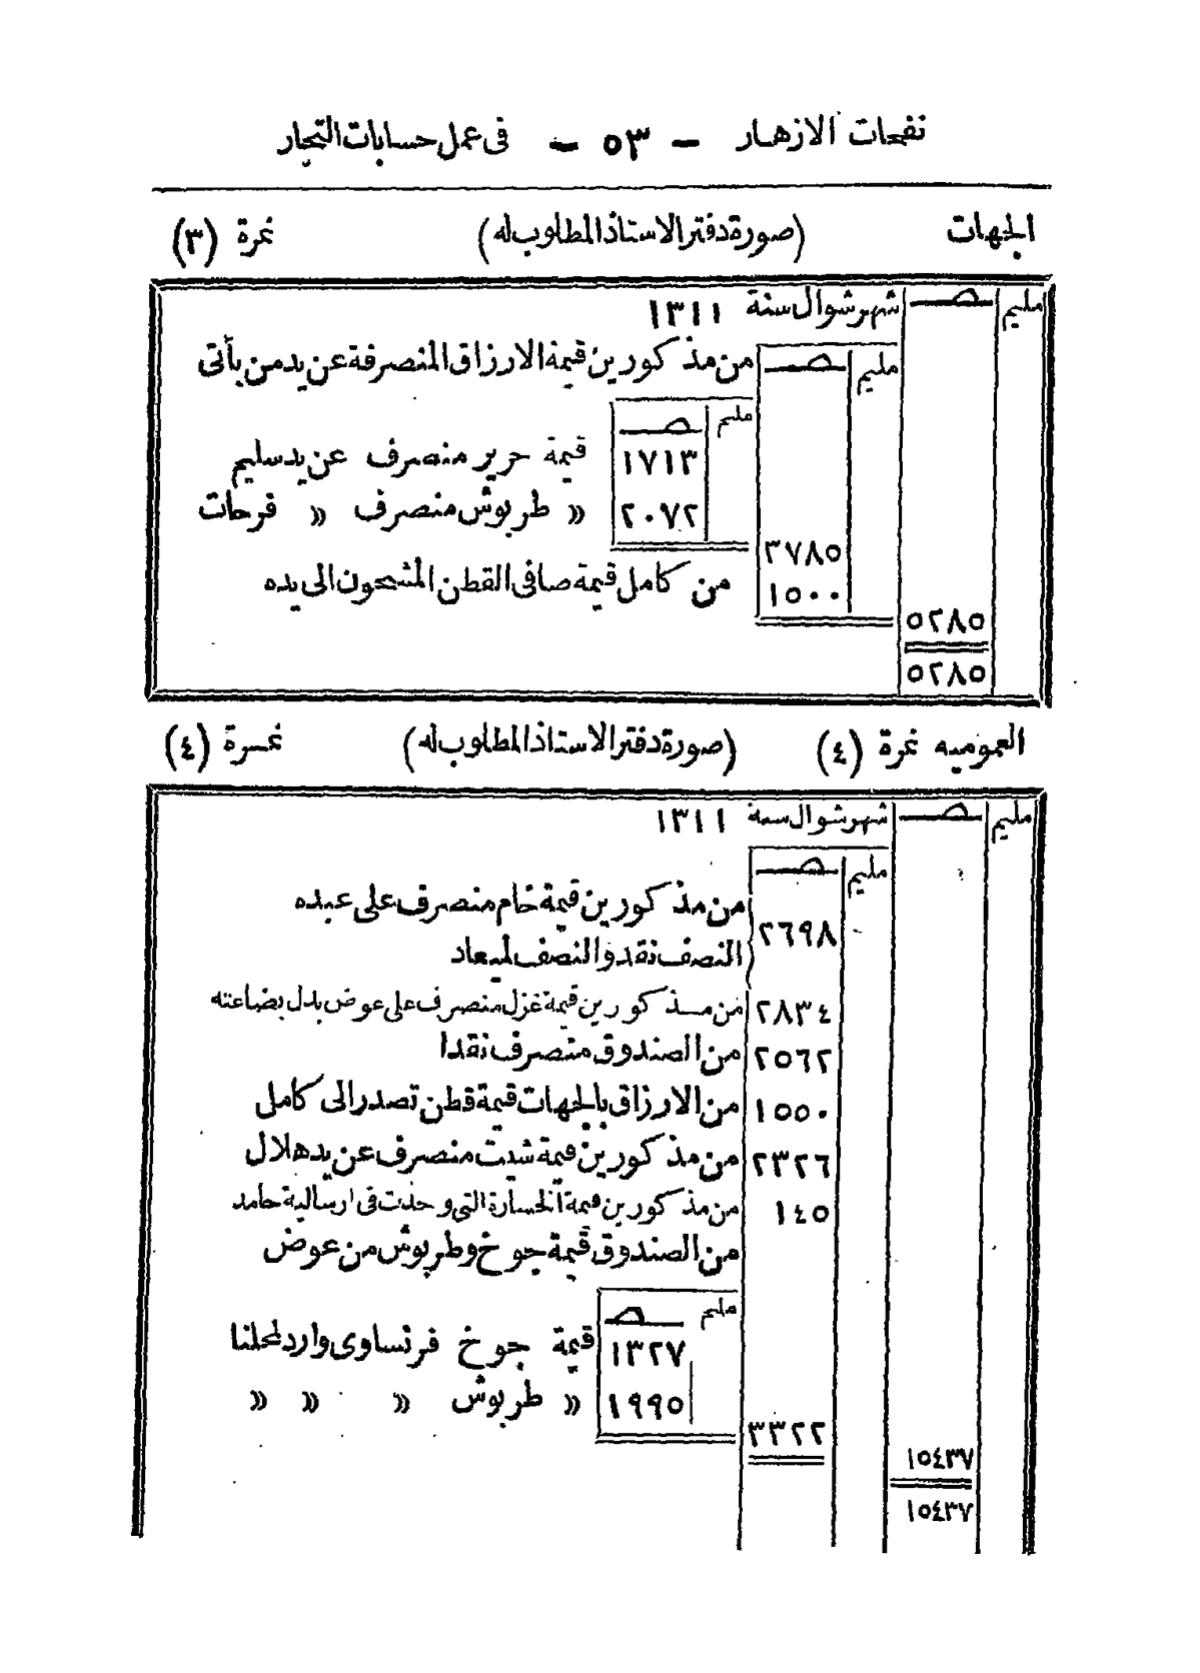 نفحات الازهار - ٥٣ - فى عمل حسابات التجار
الجهات (صورة دفتر الاستاذ المطلوب له) نمرة (٣)
مليم صـ شهر شوال سنة ١٣١١
مليم صـ من مذكورين قيمة الارزاق المنصرفة عن يد من يأتى
مليم صـ
١٧١٣ قيمة حرير منصرف عن يد سليم
٢٠٧٢ » طربوش منصرف » فرحات
٣٧٨٥
١٥٠٠ من كامل قيمة صافى القطن المشحون الى يده
٥٢٨٥
٥٢٨٥
العموميه نمرة (٤) (صورة دفتر الاستاذ المطلوب له) نمرة (٤)
مليم صـ شهر شوال سنة ١٣١١
مليم صـ
٢٦٩٨ من مذكورين قيمة خام منصرف على عبده
النصف نقد والنصف لميعاد
٢٨٣٤ من مذكورين قيمة غزل منصرف على عوض بدل بضاعته
٢٥٦٢ من الصندوق منصرف نقدا
١٥٥٠ من الارزاق بالجهات قيمة قطن تصدر الى كامل
٢٣٢٦ من مذكورين قيمة شيت منصرف عن يد هلال
١٤٥ من مذكورين قيمة الخسارة التى وجدت فى ارسالية حامد
من الصندوق قيمة جوخ وطربوش من عوض
مليم صـ
١٣٢٧ قيمة جوخ فرنساوى وارد لمحلنا
١٩٩٥ » طربوش » » »
٣٣٢٢
١٥٤٣٧
١٥٤٣٧